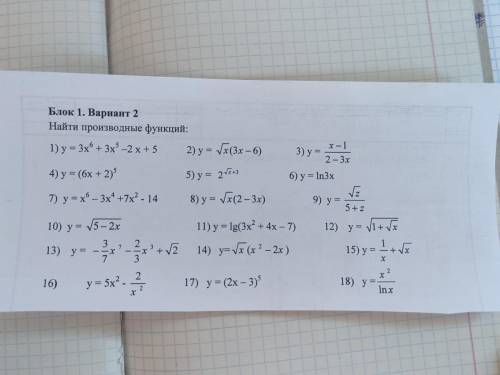 Блок 1. Вариант 2
Найти производные функций:
1) y = 3x⁶ + 3x⁵ –2 x + 5 2) y = √x(3x – 6) 3) y = (x – 1)/(2 – 3x)
4) y = (6x + 2)⁵ 5) y = 2^(√x+3) 6) y = ln3x
7) y = x⁶ – 3x⁴ +7x² - 14 8) y = √x(2 – 3x) 9) y = √z/(5 + z)
10) y = √(5 – 2x) 11) y = lg(3x² + 4x – 7) 12) y = √(1 + √x)
13) y = –3/7 x⁷ – 2/3 x³ + √2 14) y= √x (x² – 2x) 15) y = 1/x + √x
16) y = 5x² - 2/x² 17) y = (2x – 3)⁵ 18) y = x²/lnx